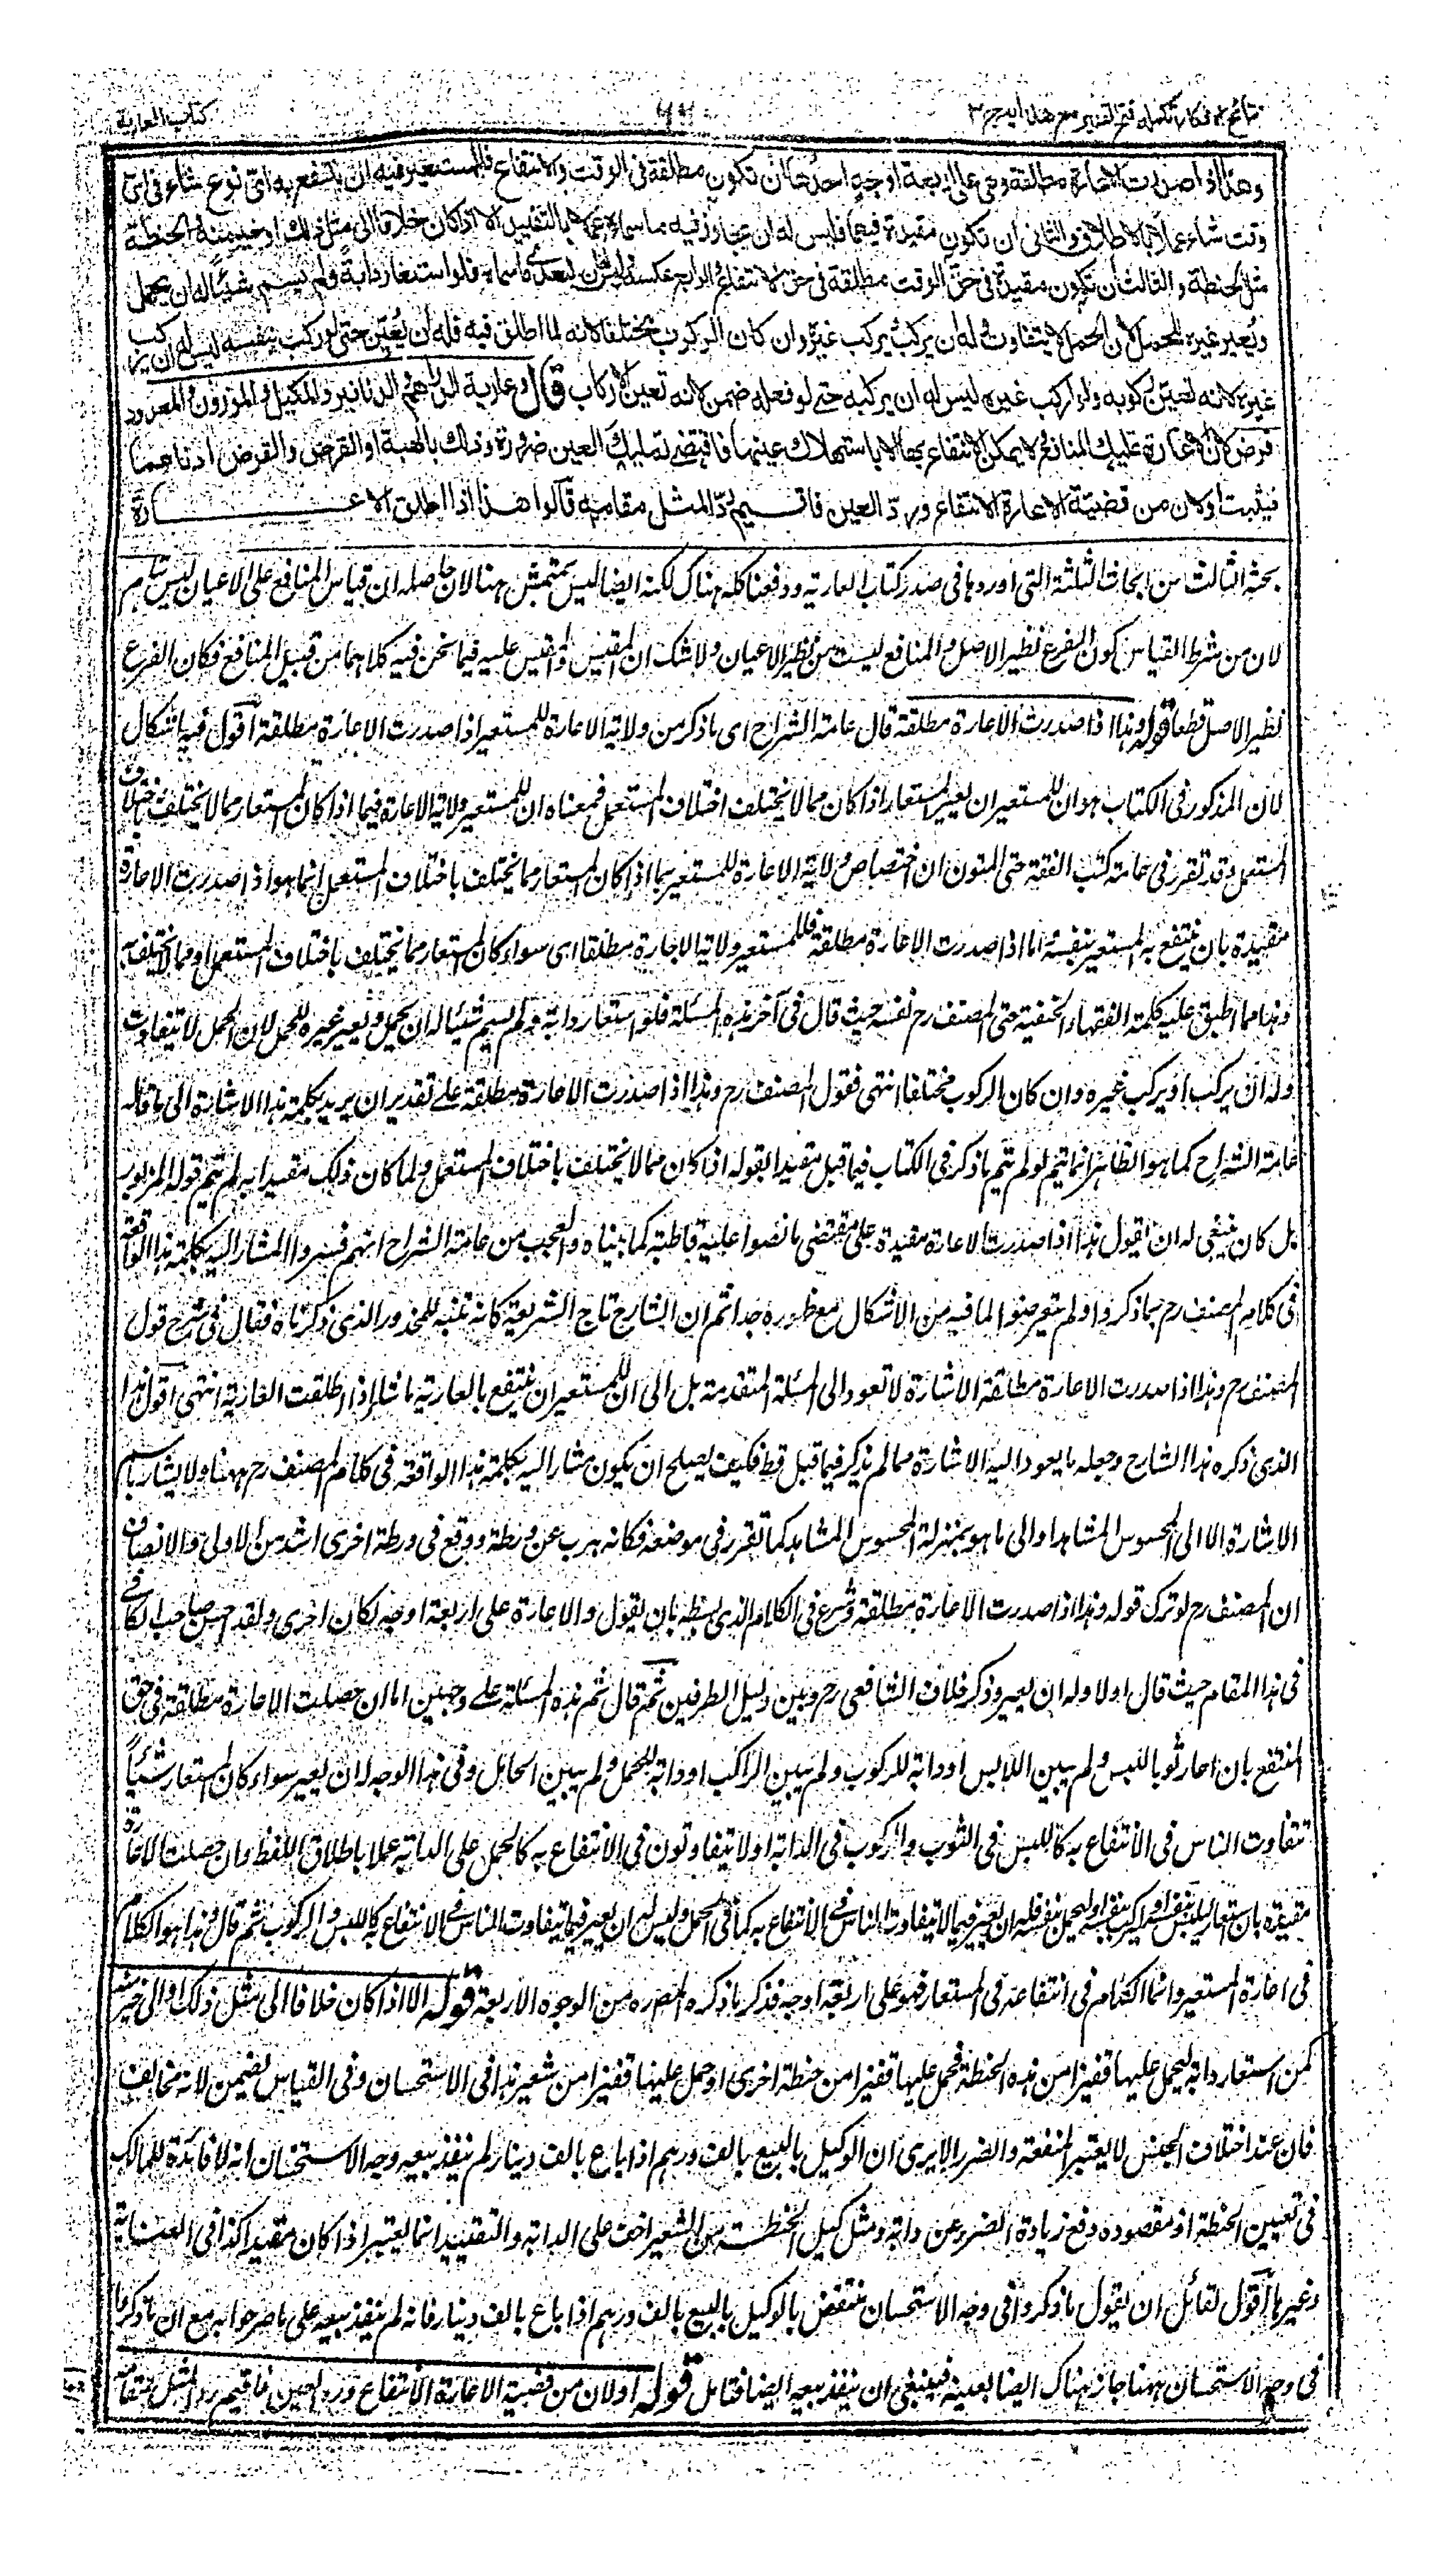 نتائج الافكار تكملة فتح القدير مع هداية ج ٣
كتاب العارية
وهذا اذا صدرت الاعارة مطلقة وهي على اربعة اوجه احدها ان تكون مطلقة في الوقت والانتفاع فللمستعير فيه ان ينتفع به اي نوع شاء في اي
وقت شاء عملا بالاطلاق والثاني ان تكون مقيدة فيهما فليس له ان يجاوز فيه ما سماه عملا بالتقييد الا اذا كان خلافا الى مثل ذلك او خير منه والحنطة
مثل الحنطة والثالث ان تكون مقيدة في حق الوقت مطلقة في حق الانتفاع والرابع عكسه وليس له ان يتعدى ما سماه فلو استعار دابة ولم يسم شيئا له ان يحمل
ويعير غيره للحمل لان الحمل لا يتفاوت وله ان يركب ويركب غيره وان كان الركوب مختلفا لانه لما اطلق فيه فله ان يعين حتى لو ركب بنفسه ليس له ان يركب
غيره لانه تعين ركوبه ولو اركب غيره ليس له ان يركبه حتى لو فعله ضمن لانه تعين الاركاب قال وعارية الدراهم والدنانير والمكيل والموزون والمعدود
قرض لان الاعارة تمليك المنافع ولا يمكن الانتفاع بها الا باستهلاك عينها فاقتضى تمليك العين ضرورة وذلك بالهبة او القرض والقرض ادناهما
فيثبت او لان من قضية الاعارة الانتفاع ورد العين فاقيم رد المثل مقامه قالوا هذا اذا اطلق الاعارة
بحثه الثالث من ابحاث الثلثة التي اوردها في صدر كتاب العارية ودفعنا كله هناك لكنه ايضا ليس بمتمش هنا لان حاصله ان قياس المنافع على الاعيان ليس بتام
لان من شرط القياس كون الفرع نظير الاصل والمنافع ليست من نظير الاعيان ولا شك ان المقيس والمقيس عليه فيما نحن فيه كلاهما من قبيل المنافع فكان الفرع
نظير الاصل قطعا قوله وهذا اذا صدرت الاعارة مطلقة قال عامة الشراح اي ما ذكر من ولاية الاعارة للمستعير اذا صدرت الاعارة مطلقة اقول فيه اشكال
لان المذكور في الكتاب هو ان للمستعير ان يعير المستعار اذا كان مما لا يختلف باختلاف المستعمل فمعناه ان للمستعير ولاية الاعارة فيما اذا كان المستعار مما لا يختلف باختلاف
المستعمل وقد تقرر في عامة كتب الفقه حتى المتون ان اختصاص ولاية الاعارة للمستعير بما اذا كان المستعار مما يختلف باختلاف المستعمل انما هو اذا صدرت الاعارة
مقيدة بان ينتفع به المستعير بنفسه اما اذا صدرت الاعارة مطلقة فللمستعير ولاية الاجارة مطلقا اي سواء كان المستعار مما يختلف باختلاف المستعمل او مما لا يختلف به
وهذا مما اطبق عليه كلمة الفقهاء الحنفية حتى المصنف رح نفسه حيث قال في آخر هذه المسئلة فلو استعار دابة ولم يسم شيئا له ان يحمل ويعير غيره للحمل لان الحمل لا يتفاوت
وله ان يركب او يركب غيره وان كان الركوب مختلفا انتهى فقول المصنف رح وهذا اذا صدرت الاعارة مطلقة على تقدير ان يريد بكلمة هذا الاشارة الى ما قاله
عامة الشراح كما هو الظاهر انما يتم لو لم يتم ما ذكر في الكتاب فيما قبل مقيدا بقوله اذا كان مما لا يختلف باختلاف المستعمل ولما كان ذلك مقيدا به لم يتم قوله المزبور
بل كان ينبغي له ان يقول هذا اذا صدرت الاعارة مقيدة على مقتضى ما نصوا عليه قاطبة كما بيناه والعجب من عامة الشراح انهم فسروا المشار اليه بكلمة هذا الواقعة
في كلام المصنف رح بما ذكروا ولم يتعرضوا لما فيه من الاشكال مع ظهوره جدا ثم ان الشارح تاج الشريعة كانه تنبه للمحذور الذي ذكرناه فقال في شرح قول
المصنف رح وهذا اذا صدرت الاعارة مطلقة الاشارة لا تعود الى المسئلة المتقدمة بل الى ان للمستعير ان ينتفع بالعارية ما شاء اذا اطلقت العارية انتهى اقول هذا
الذي ذكره هذا الشارح وجعله ما يعود اليه الاشارة مما لم يذكر فيما قبل قط فكيف يصلح ان يكون مشارا اليه بكلمة هذا الواقعة في كلام المصنف رح ههنا ولا يشار باسم
الاشارة الا الى المحسوس المشاهد او الى ما هو بمنزلة المحسوس المشاهد كما تقرر في موضعه فكانه هرب عن ورطة ووقع في ورطة اخرى اشد من الاولى والانصاف
ان المصنف رح لو ترك قوله وهذا اذا صدرت الاعارة مطلقة وشرع في الكلام الذي بسطه بان يقول والاعارة على اربعة اوجه لكان احرى ولقد احسن صاحب الكافي
في هذا المقام حيث قال اولا وله ان يعير وذكر خلاف الشافعي رح وبين دليل الطرفين ثم قال ثم هذه المسئلة على وجهين اما ان حصلت الاعارة مطلقة في حق
المنتفع بان اعار ثوبا للبس ولم يبين اللابس او دابة للركوب ولم يبين الراكب او دابة للحمل ولم يبين الحامل وفي هذا الوجه له ان يعير سواء كان المستعار شيئا
تتفاوت الناس في الانتفاع به كاللبس في الثوب والركوب في الدابة او لا يتفاوتون في الانتفاع به كالحمل على الدابة عملا باطلاق اللفظ وان حصلت الاعارة
مقيدة بان استعار ليلبس بنفسه او ليركب بنفسه او ليحمل بنفسه فله ان يعير فيما لا يتفاوت الناس في الانتفاع به كما في الحمل وليس له ان يعير فيما يتفاوت الناس في الانتفاع كاللبس والركوب ثم قال وهذا هو الكلام
في اعارة المستعير واما الكلام في انتفاعه في المستعار فهو على اربعة اوجه فذكر ما ذكره المص ره من الوجوه الاربعة قوله الا اذا كان خلافا الى مثل ذلك او الى خير منه
كمن استعار دابة ليحمل عليها قفيزا من هذه الحنطة فحمل عليها قفيزا من حنطة اخرى او حمل عليها قفيزا من شعير هذا في الاستحسان وفي القياس يضمن لانه مخالف
فان عند اختلاف الجنس لا يعتبر المنفعة والضرر الا يرى ان الوكيل بالبيع بالف درهم اذا باع بالف دينار لم ينفذ بيعه وجه الاستحسان انه لا فائدة للمالك
في تعيين الحنطة اذ مقصوده دفع زيادة الضرر عن دابة ومثل كيل الحنطة من الشعير اخف على الدابة والتقييد انما يعتبر اذا كان مقيدا كذا في العناية
وغيرها اقول لقائل ان يقول ما ذكروا في وجه الاستحسان منتقض بالوكيل بالبيع بالف درهم اذا باع بالف دينار فانه لم ينفذ بيعه على ما صرحوا به مع ان ما ذكروا
في وجه الاستحسان ههنا جاز هناك ايضا بعينه فينبغي ان ينفذ بيعه ايضا فتامل قوله او لان من قضية الاعارة الانتفاع ورد العين فاقيم رد المثل مقامه